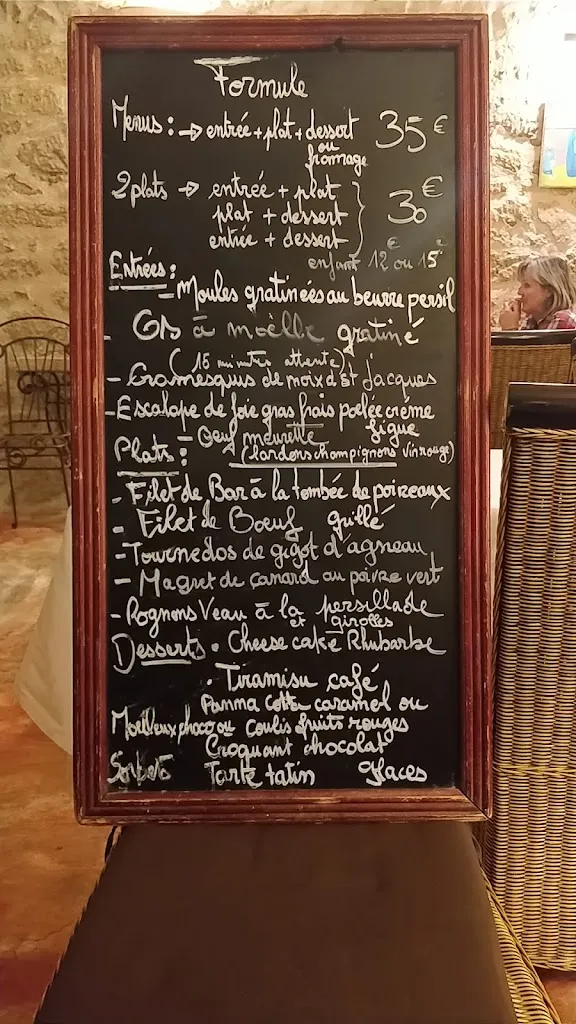 Formule
Menus : → entrée + plat + dessert 35 €
ou
fromage
2 plats → entrée + plat
plat + dessert 30 €
entrée + dessert
enfant 12€ ou 15€
Entrées :
- Moules gratinées au beurre persil
- OS à moëlle gratiné
(15 minutes attente)
- Cromesquis de noix d St Jacques
- Escalope de foie gras frais poêlée crème
figue
- Oeuf meurette
(lardons champignons vin rouge)
Plats :
- Filet de Bar à la tombée de poireaux
- Filet de Boeuf grillé
- Tournedos de gigot d'agneau
- Magret de canard au poivre vert
- Rognons Veau à la persillade
et girolles
Desserts . Cheese cake Rhubarbe
. Tiramisu café
Panna Cotta caramel ou
Moelleux choco ou Coulis fruits rouges
Croquant chocolat
Sorbets Tarte tatin Glaces